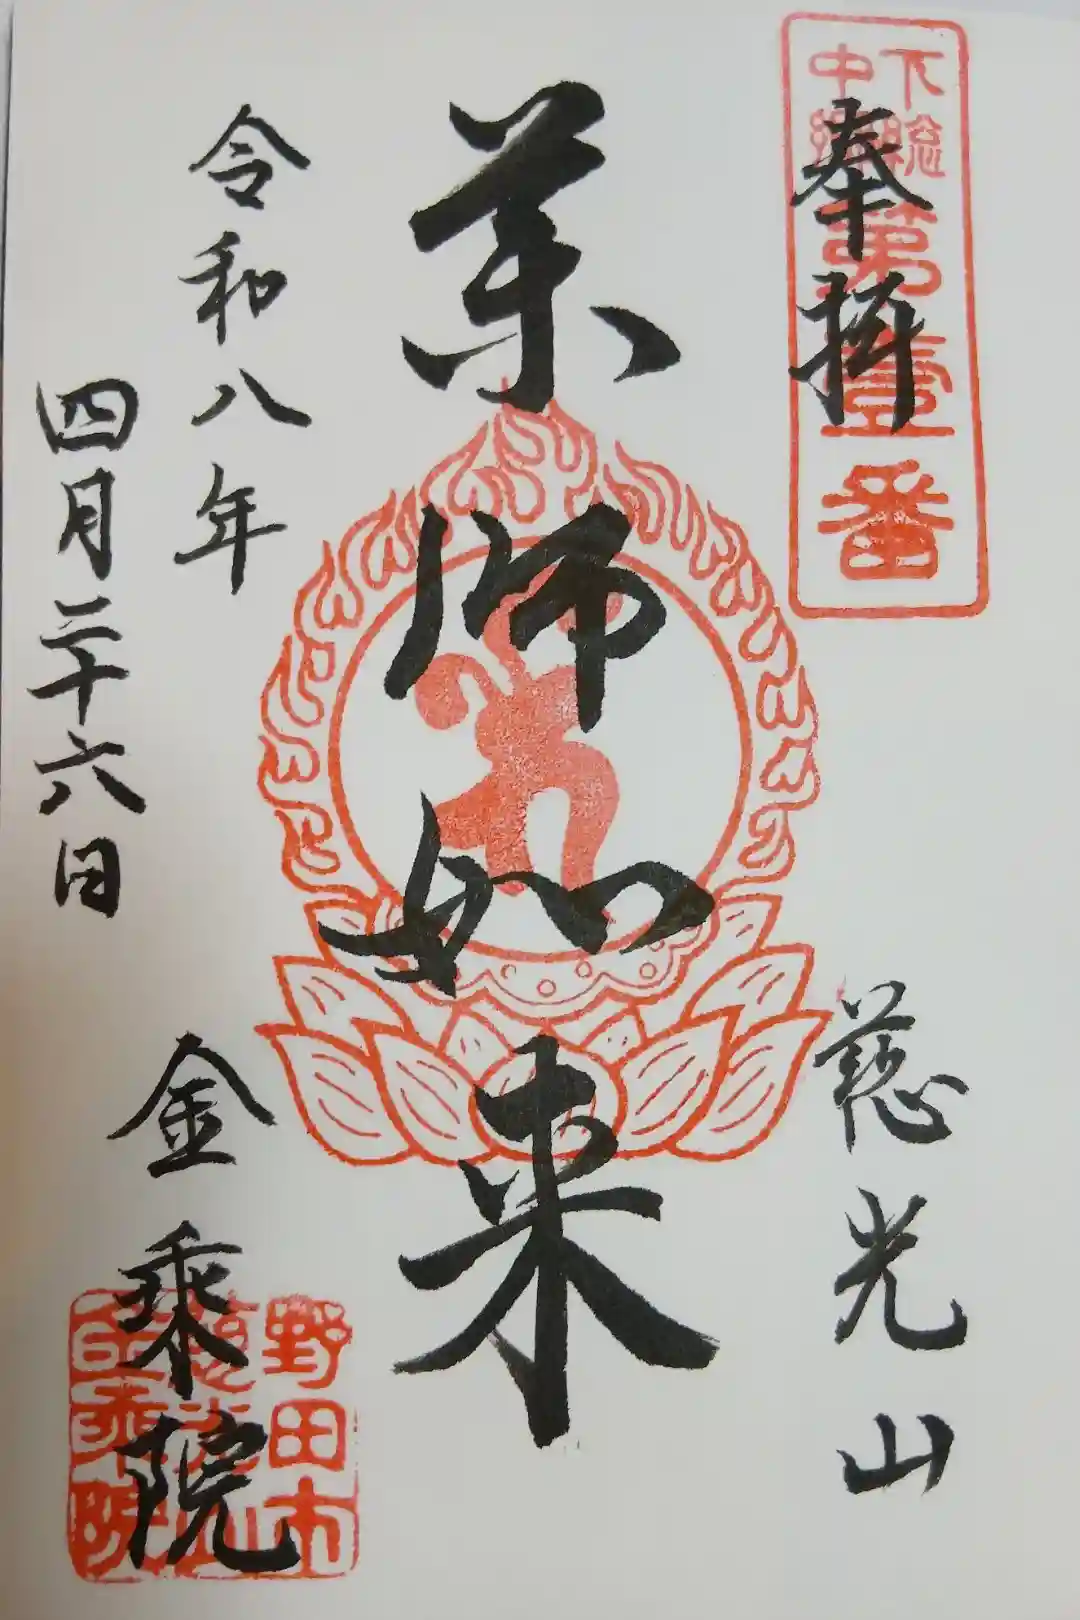 下総
中
第壹番
奉拝
慈光山
薬師如来
令和八年
四月二十六日
金乗院
野田市
慈光山
金乗院